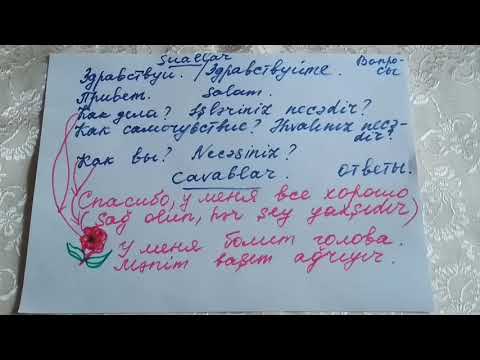 Suallar Вопросы
Здравствуй. / Здравствуйте.
Привет. Salam.
Как дела? İşləriniz necədir?
Как самочувствие? Əhvalınız necədir?
Как вы? Necəsiniz?
Cavablar. Ответы.
(Спасибо, у меня все хорошо
(Sağ olun, hər şey yaxşıdır)
У меня болит голова.
Mənim başım ağrıyır.